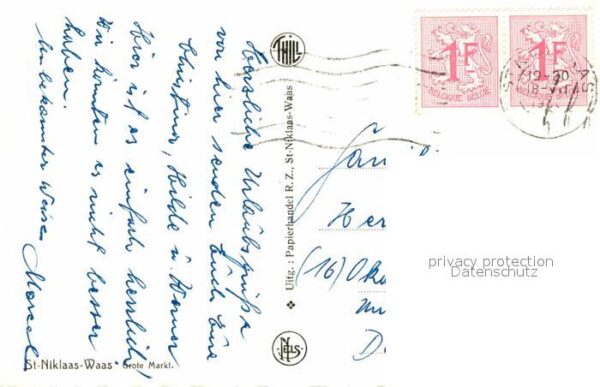 Herzliche Urlaubsgrüße
von hier senden Euch Eure
Christina, Hilde u. Werner
Hier ist es einfach herrlich!
Wir könnten es nicht besser
haben.
Unbekannter Weise Marcel
St-Niklaas-Waas Grote Markt.
THILL
Uitg.: Papierhandel R. Z., St-Niklaas-Waas
NELS
1F
BELGIQUE BELGIE
1F
BELGIQUE BELGIE
12-20
18-VII
Fam
Her
(16)
privacy protection
Datenschutz